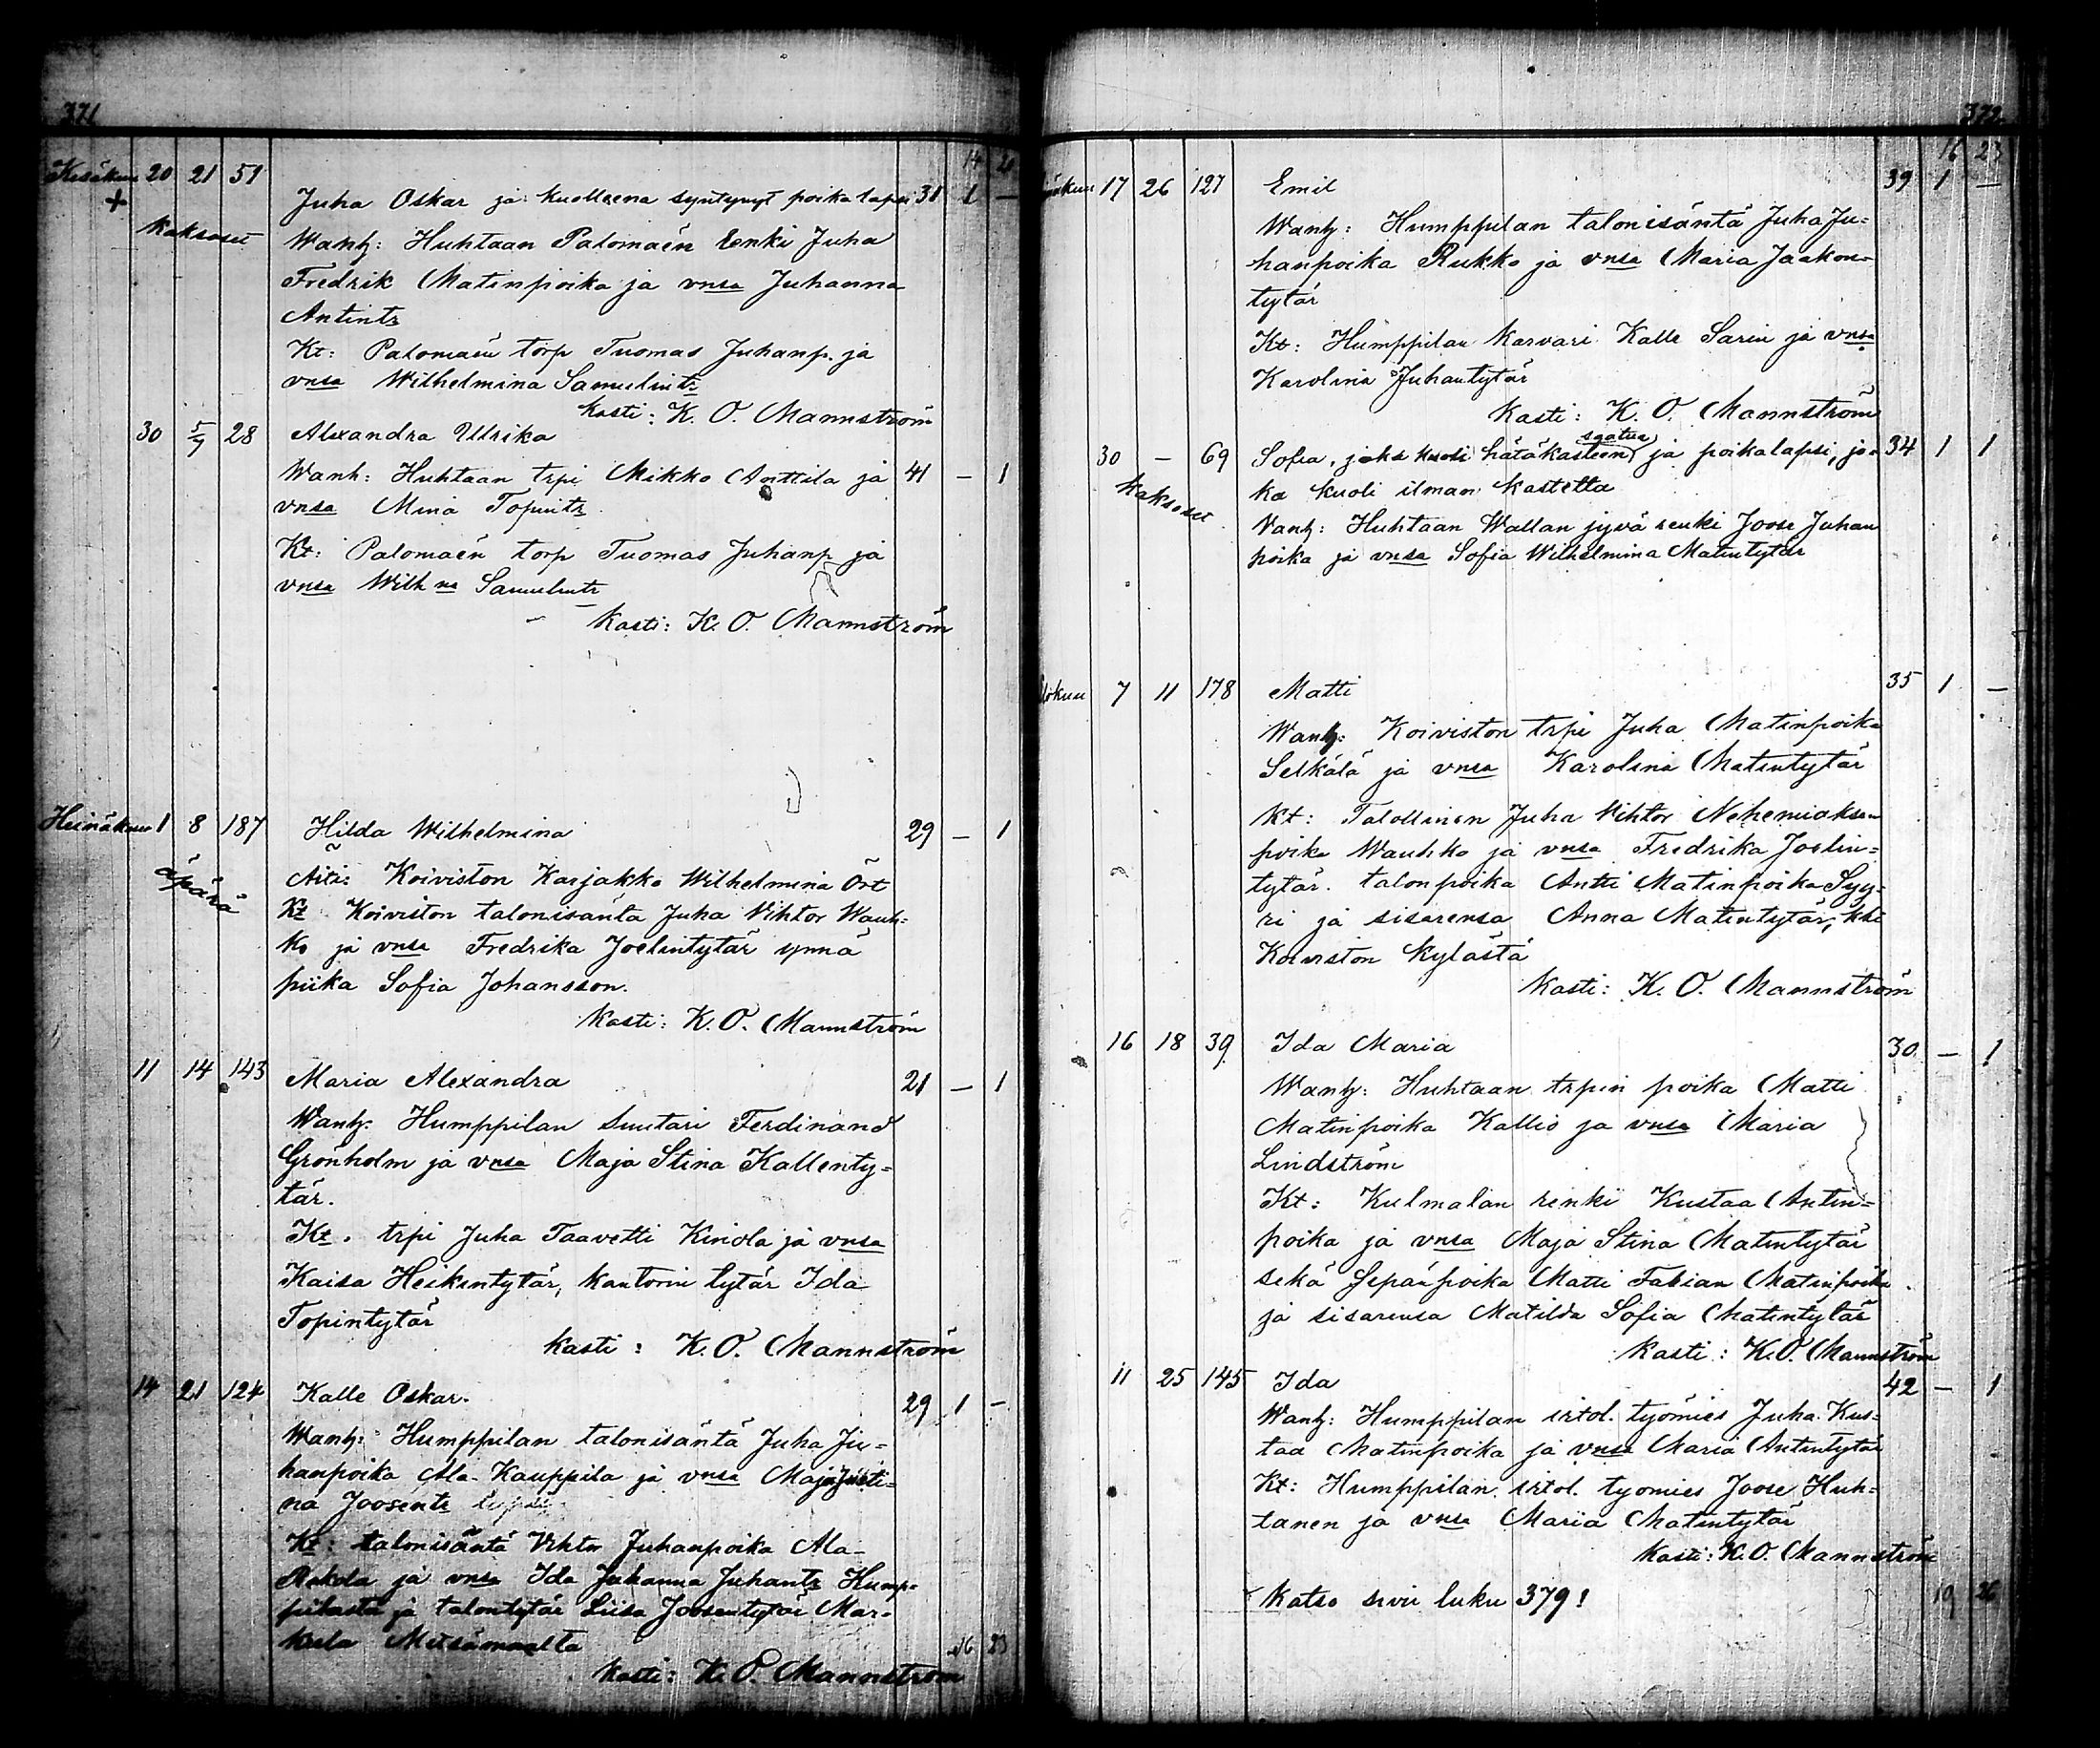 371
14 21
Kesäkuu 20 21 51
+ Juha Oskar ja kuolleena syntynyt poika lapsi 31 1 —
kaksoset Wanh: Huhtaan Palomäen renki Juha
Fredrik Matinpoika ja vnsa Juhanna
Antintr
Kt: Palomäen torp Tuomas Juhanp. ja
vnsa Wilhelmina Samulintr
Kasti: K. O. Mannström
30 5/7 28 Alexandra Ulrika
Wanh: Huhtaan trpi Mikko Anttila ja 41 — 1
vnsa Mina Topintr
Kt: Palomäen torp Tuomas Juhanp ja
vnsa Wilh na Samulintr
Kasti: K. O. Mannström
Heinäkuu 1 8 187 Hilda Wilhelmina 29 — 1
äpärä Äiti: Koiviston Karjakko Wilhelmina Ört
Kt Koiviston talonisäntä Juha Vihtor Wauh-
ko ja vnsa Fredrika Joelintytär ynnä
piika Sofia Johansson.
Kasti: K. O. Mannström
11 14 143 Maria Alexandra 21 — 1
Wanh: Humppilan Suutari Ferdinand
Grönholm ja vnsa Maja Stina Kallenty-
tär.
Kt. trpi Juha Taavetti Kiriola ja vnsa
Kaisa Heikintytär, kantorin tytär Ida
Topintytär
Kasti: K. O. Mannström
14 21 124 Kalle Oskar. 29 1 —
Wanh: Humppilan talonisäntä Juha Ju-
hanpoika Ala-Kauppila ja vnsa Maja Justi-
na Joosentr
Kt: talonisäntä Vihtor Juhanpoika Ala-
ja vnsa Ida Juhanna Juhantr Hump-
pilasta ja talontytär Liisa Joosentytär Mar-
kula Metsämaalta
16 23
Kasti: K. O. Mannström
372
16 23
17 26 127 Emil 39 1 —
Wanh: Humppilan talonisäntä Juha Ju-
hanpoika Rukko ja vnsa Maria Jaakon-
tytär
Kt: Humppilan Karvari Kalle Sarin ja vnsa
Karolina Juhantytär
Kasti: K. O. Mannström
30 — 69 Sofia, joka kuoli hätäkasteen saatua ja poikalapsi, jo- 34 1 1
kaksoset ka kuoli ilman kastetta
Vanh: Huhtaan Wallan jyvä renki Joose Juhan
poika ja vnsa Sofia Wilhelmina Matintytär
Elokuu 7 11 178 Matti 35 1 —
Wanh: Koiviston trpi Juha Matinpoika
Selkälä ja vnsa Karolina Matintytär
Kt: Talollinen Juha Vihtor Nehemiaksen
poika Wauhko ja vnsa Fredrika Joelin-
tytär. talonpoika Antti Matinpoika Syy-
ri ja sisarensa Anna Matintytär, kki
Koiviston kylästä
Kasti: K. O. Mannström
16 18 39 Ida Maria 30 — 1
Wanh: Huhtaan trpin poika Matti
Matinpoika Kallio ja vnsa Maria
Lindström
Kt: Kulmalan renki Kustaa Antin-
poika ja vnsa Maja Stina Matintytär
sekä Sepän poika Matti Fabian Matinpoika
ja sisarensa Matilda Sofia Matintytär
Kasti: K. O. Mannström
11 25 145 Ida 42 — 1
Wanh: Humppilan irtol. työmies Juha Kus-
taa Matinpoika ja vnsa Maria Antintytär
Kt: Humppilan irtol. tyomies Joose Huh-
tanen ja vnsa Maria Matintytär
Kasti: K. O. Mannström
Katso sivu luku 379! 19 26